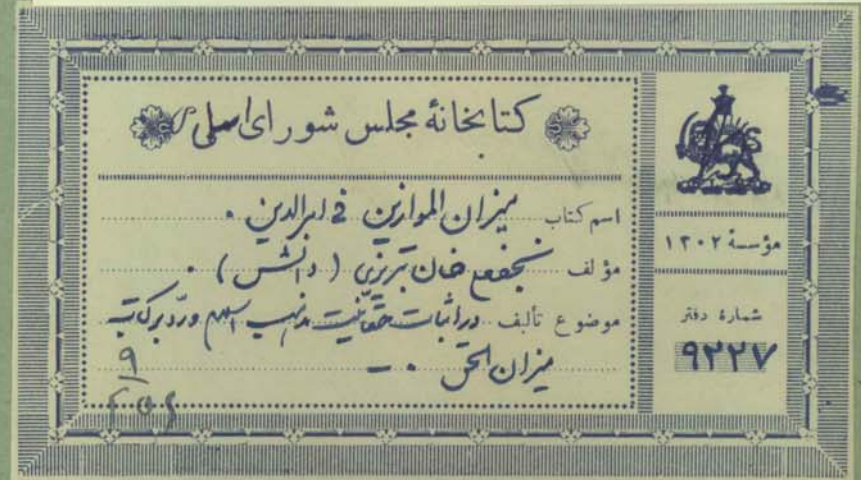 کتابخانهٔ مجلس شورای اسلامی
اسم کتاب میزان الموازین فی امرالدین .
مؤلف نجفعلی خان تبریزی ( دانش ) .
موضوع تألیف در اثبات حقانیت مذهب اسلام و رد بر کتاب
میزان الحق . –
مؤسسهٔ ۱۳۰۲
شمارهٔ دفتر
۹۲۲۷